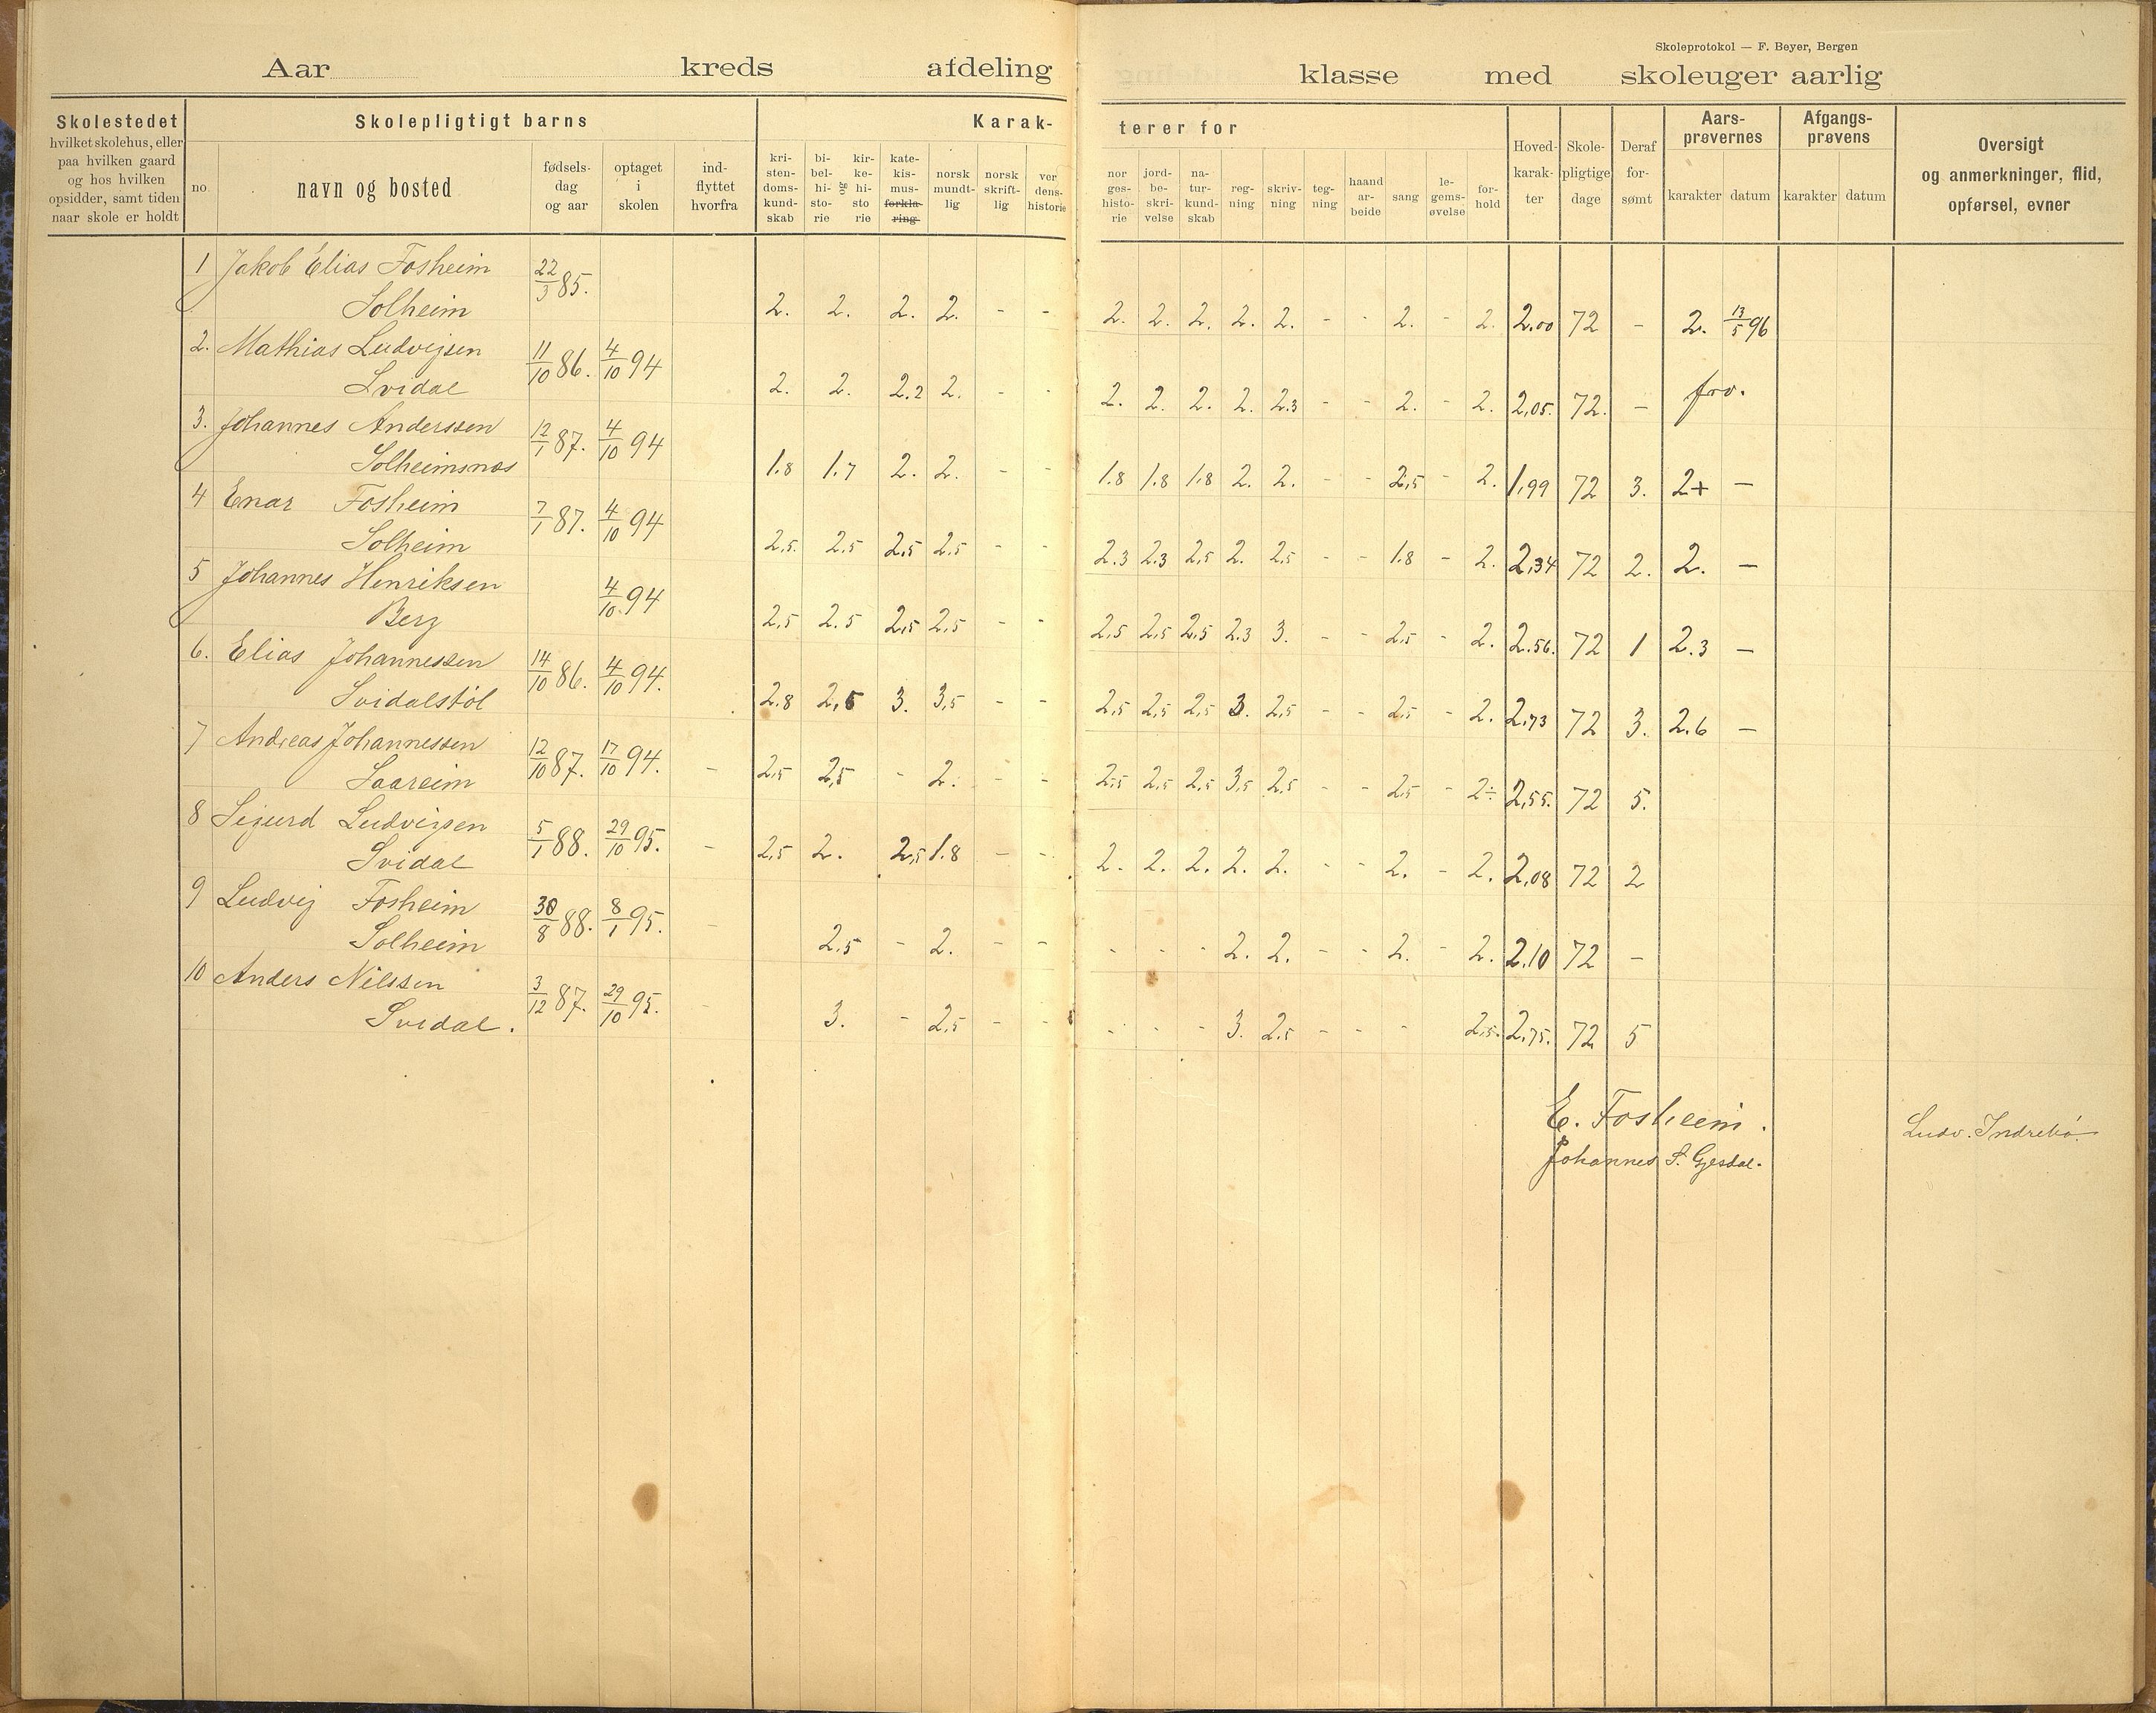 Skoleprotokol — F. Beyer, Bergen
Aar kreds afdeling klasse med skoleuger aarlig
Skolestedet
hvilket skolehus, eller
paa hvilken gaard
og hos hvilken
opsidder, samt tiden
naar skole er holdt
Skolepligtigt barns
no.
navn og bosted
fødsels-
dag
og aar
optaget
i
skolen
ind-
flyttet
hvorfra
Karak-
kri-
sten-
doms-
kund-
skab
bi-
bel-
hi-
sto-
rie
og
kir-
ke-
hi-
sto
rie
kate-
kis-
mus-
forkla-
ring
norsk
mundt-
lig
norsk
skrift-
lig
ver
dens-
historie
terer for
nor
ges-
histo-
rie
jord-
be-
skri-
velse
na-
tur-
kund-
skab
reg-
ning
skriv-
ning
teg-
ning
haand
ar-
beide
sang
le-
gems-
øvelse
for-
hold
Hoved-
karak-
ter
Skole-
pligtige
dage
Deraf
for-
sømt
Aars-
prøvernes
karakter datum
Afgangs-
prøvens
karakter datum
Oversigt
og anmerkninger, flid,
opførsel, evner
1 Jakob Elias Fosheim 22/3 85.
Solheim 2. 2. 2. 2. - - 2. 2. 2. 2. 2. - - 2. - 2. 2.00 72 - 2. 13/5 96
2. Mathias Ludvigsen 11/10 86. 4/10 94
Svidal 2. 2. 2.2 2. - - 2. 2. 2. 2. 2.3 - - 2. - 2. 2,05. 72. - frv.
3. Johannes Anderssen 12/1 87. 4/10 94
Solheimsnæs 1.8 1.7 2. 2. - - 1.8 1.8 1.8 2. 2. - - 2,5 - 2. 1,99 72 3. 2+ —
4 Enar Fosheim 7/1 87. 4/10 94
Solheim 2,5. 2,5 2,5 2,5 - - 2.3 2.3 2,5 2. 2,5 - - 1.8 - 2. 2,34 72 2. 2. —
5 Johannes Henriksen 4/10 94
Berg 2,5 2.5 2,5 2,5 - - 2,5 2,5 2,5 2.3 3. - - 2,5 - 2. 2.56. 72 1 2.3 —
6. Elias Johannessen 14/10 86. 4/10 94.
Svidalstøl 2.8 2,5 3. 3,5 - - 2,5 2,5 2,5 3. 2,5 - - 2,5 - 2. 2,73 72 3. 2.6 —
7 Andreas Johannessen 12/10 87. 17/10 94. -
Saareim 2,5 2,5 - 2. - - 2,5 2,5 2,5 3,5 2,5 - - 2,5 - 2÷ 2,55. 72 5.
8 Sigurd Ludvigsen 5/1 88. 29/10 95. -
Svidal 2,5 2. 2,5 1.8 - - 2. 2. 2. 2. 2. - - 2. - 2. 2,08 72 2
9 Ludvig Fosheim 30/8 88. 8/1 95. -
Solheim 2.5 - 2. - - - - - 2. 2. - - 2. - 2. 2.10 72 -
10 Anders Nilssen 3/12 87. 29/10 95. -
Svidal. 3. - 2,5 - - - - - 3. 2,5 - - - 2,5. 2,75. 72 5
E. Fosheim.
Ludv. Indrebø.
Johannes S. Gjesdal.